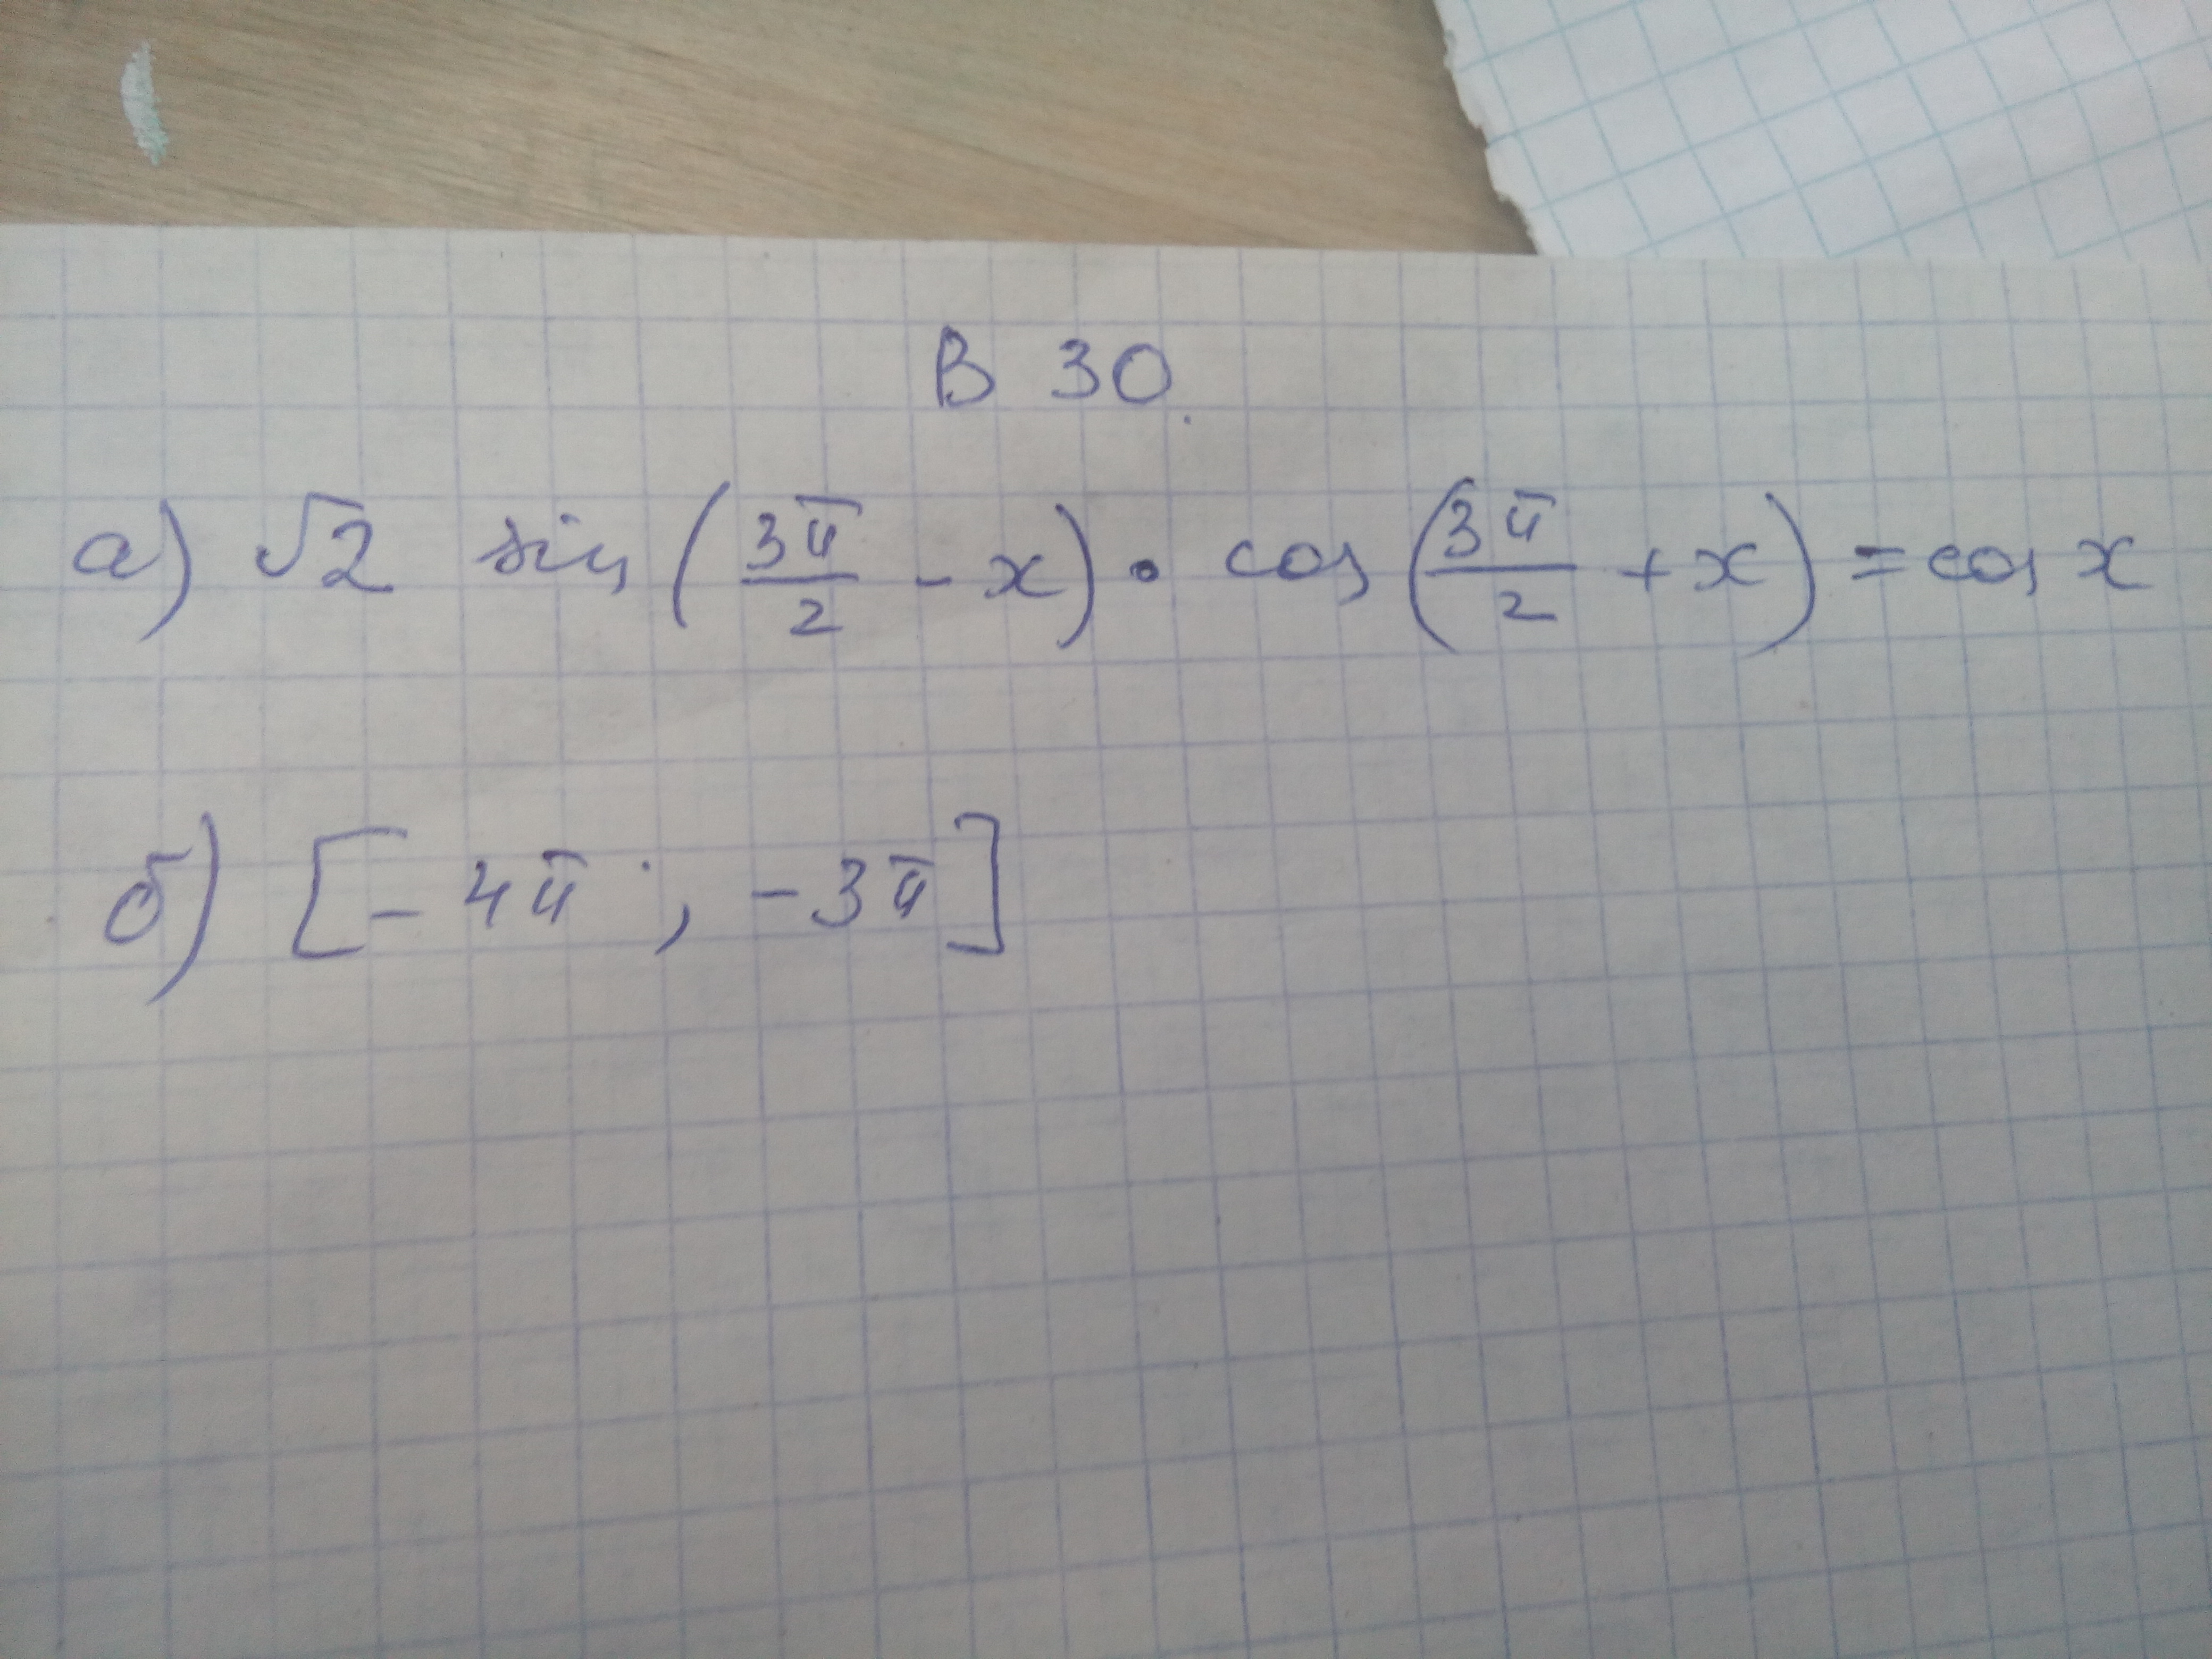 В 30.
а) √2 sin(3π/2 - x) • cos(3π/2 + x) = cos x
б) [- 4π ; - 3π]